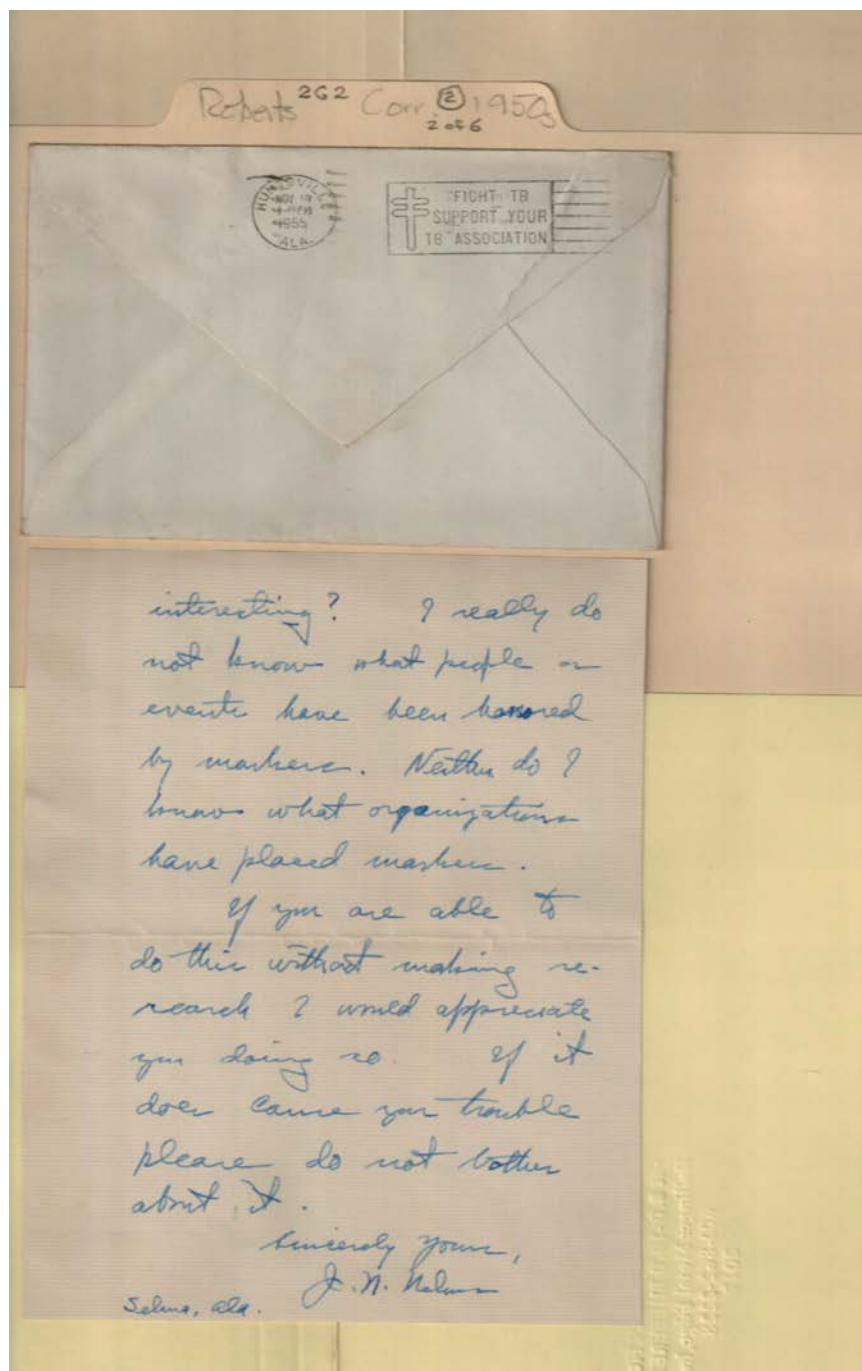 Roberts 2G2 Corr. ② 1950s
2 of 6
HUNTSVILLE
NOV
PM
1955
ALA.
FIGHT TB
SUPPORT YOUR
TB ASSOCIATION
interesting? I really do
not know what people or
events have been honored
by markers. Neither do I
know what organizations
have placed markers.
If you are able to
do this without making re-
search I would appreciate
you doing so. If it
does cause you trouble
please do not bother
about it.
Sincerely yours,
J. N. Nelms
Selma, Ala.